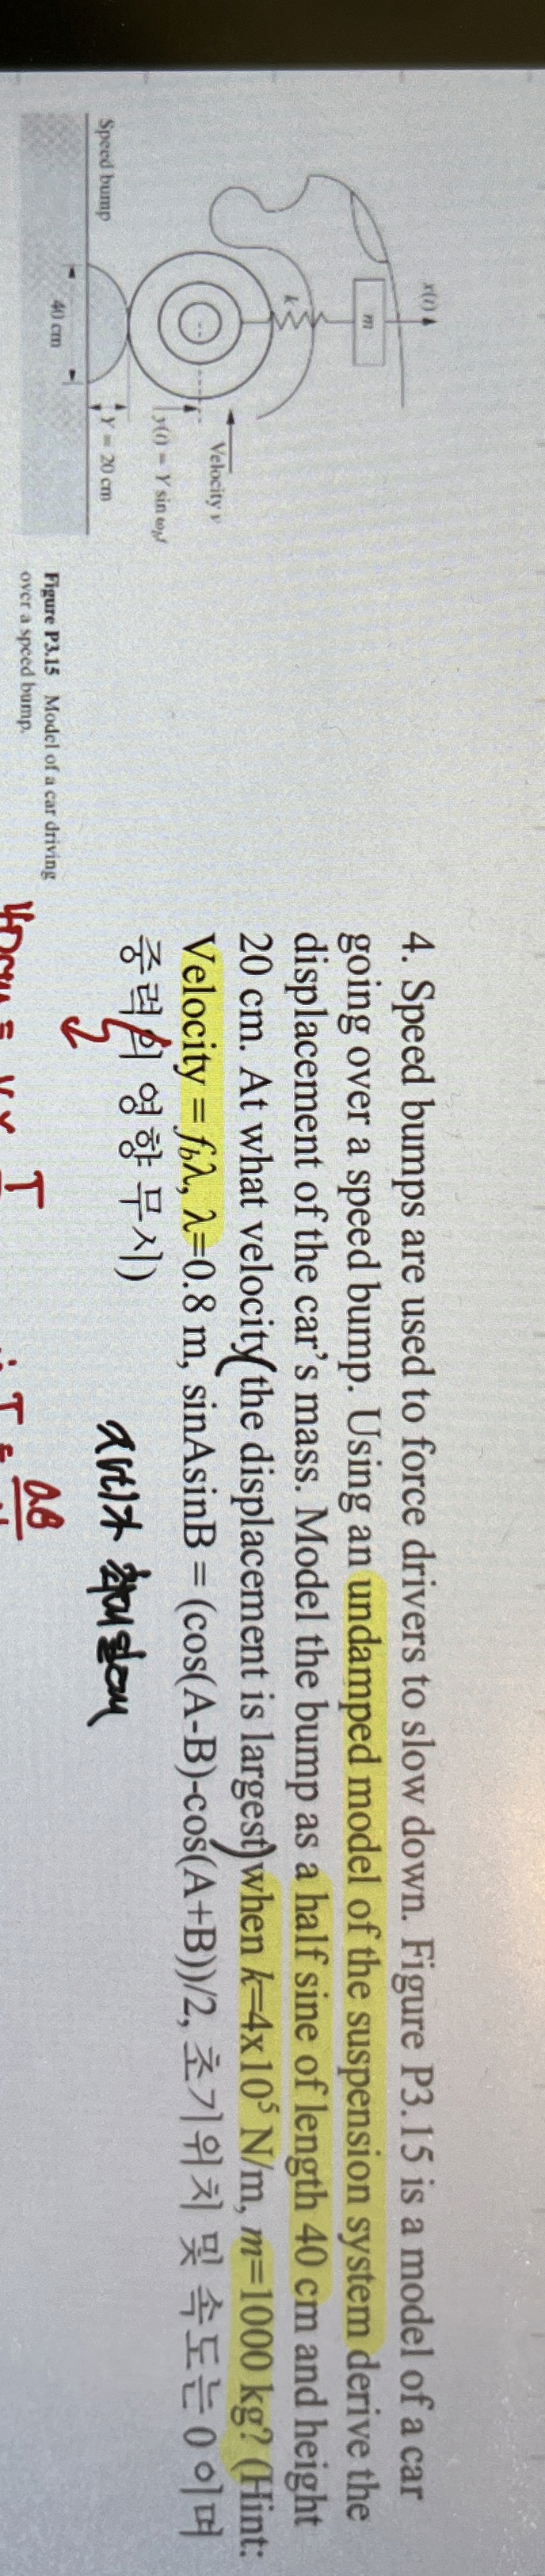 4. Speed bumps are used to force drivers to slow down. Figure P3.15 is a model of a car
going over a speed bump. Using an undamped model of the suspension system derive the
displacement of the car's mass. Model the bump as a half sine of length 40 cm and height
20 cm. At what velocity(the displacement is largest)when k=4x10⁵ N/m, m=1000 kg? (Hint:
Velocity = f_bλ, λ=0.8 m, sinAsinB = (cos(A-B)-cos(A+B))/2, 초기위치 및 속도는 0이며
중력의 영향 무시)
x(t)
m
k
Velocity v
y(t) = Y sin ω_bt
Y = 20 cm
40 cm
Speed bump
Figure P3.15 Model of a car driving
over a speed bump.